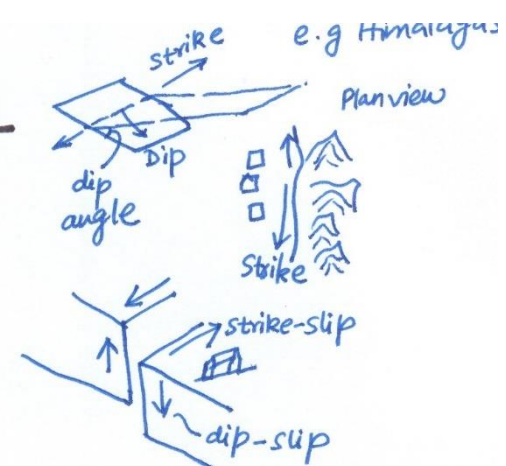 strike
e.g Himalayas
Plan view
Dip
dip
angle
Strike
strike-slip
dip-slip